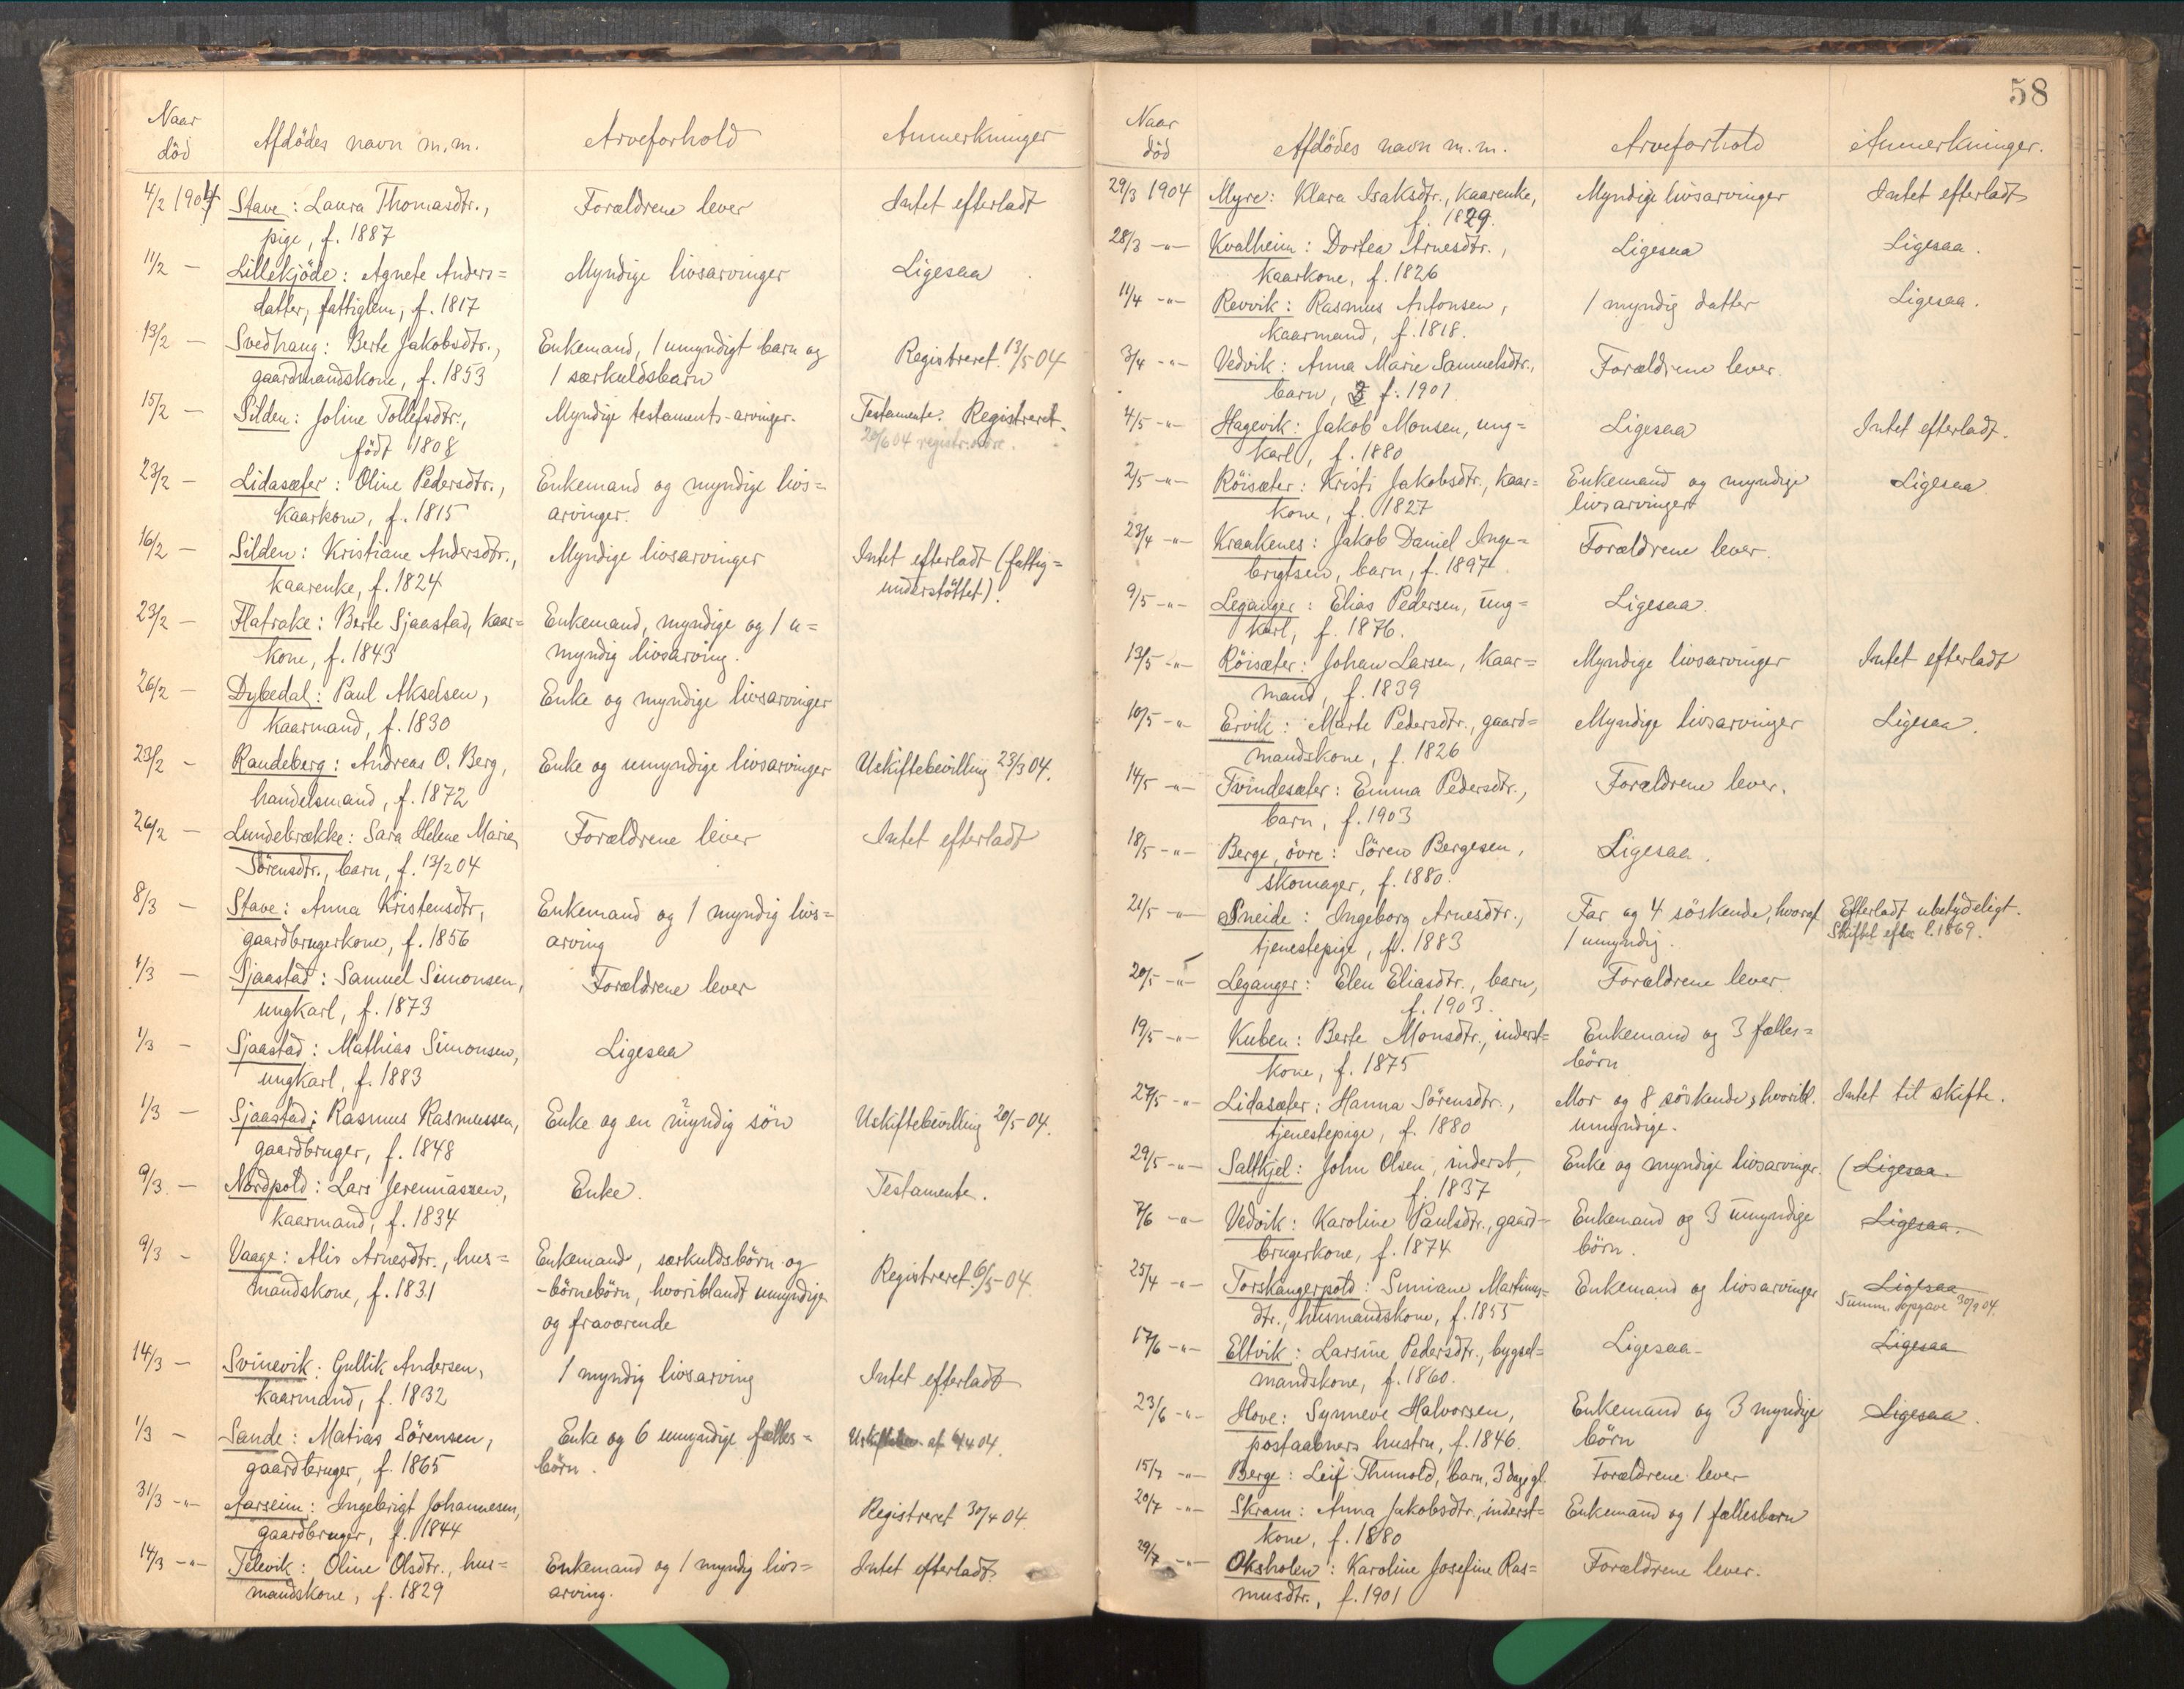 Naar
död
Afdödes navn m.m.
Arveforhold
Anmerkninger
4/2 1904 Stave: Laura Thomasdtr., Forældrene lever Intet efterladt
pige, f. 1887
11/2 — Lillekjöde: Agnete Anders= Myndige livsarvinger Ligesaa
datter, fattiglem, f. 1817
13/2 — Svedhaug: Berte Jakobsdtr., Enkemand, 1 umyndigt barn og Registreret 13/5 04
gaardmandskone, f. 1853 1 særkuldsbarn
15/2 — Silden: Joline Tollefsdtr., Myndige testaments-arvinger. Testamente. Registreret.
født 1808 20/6 04
23/2 — Lidasæter: Oline Pedersdtr., Enkemand og myndige livs=
kaarkone, f. 1815 arvinger.
16/2 — Silden: Kristiane Andersdtr., Myndige livsarvinger Intet efterladt (fattig=
kaarenke, f. 1824 understöttet).
23/2 — Flatrake: Berte Sjaastad, kaar= Enkemand, myndige og 1 u=
kone, f. 1843 myndig livsarving.
26/2 — Dybedal: Paul Akselsen, Enke og myndige livsarvinger
kaarmand, f. 1830
23/2 — Raudeberg: Andreas O. Berg, Enke og umyndige livsarvinger Uskiftebevilling 23/3 04.
handelsmand, f. 1872
26/2 — Lundebrække: Sara Helene Marie Forældrene lever Intet efterladt
Sörensdtr., barn, f. 13/2 04
8/3 — Stave: Anna Kristensdtr, Enkemand og 1 myndig livs=
gaardbrugerkone, f. 1856 arving
1/3 — Sjaastad: Samuel Simonsen, Forældrene lever
ungkarl, f. 1873
1/3 — Sjaastad: Mathias Simonsen, Ligesaa
ungkarl, f. 1883
1/3 — Sjaastad: Rasmus Rasmussen, Enke og en ? myndig sön Uskiftebevilling 20/5 04.
gaardbruger, f. 1848
9/3 — Nordpold: Lars Jeremiassen, Enke. Testamente.
kaarmand, f. 1834
9/3 — Vaage: Alis Arnesdtr., hus= Enkemand, særkuldsbörn og Registreret 6/5 04.
mandskone, f. 1831 -börnebörn, hvoriblandt umyndige
og fraværende
14/3 — Svinevik: Gullik Andersen, 1 myndig livsarving Intet efterladt
kaarmand, f. 1832
1/3 — Sande: Matias Sörensen, Enke og 6 umyndige fælles= af 4/4 04.
gaardbruger, f. 1865 börn.
31/3 -"- Aarseim: Ingebrigt Johannesen, Registreret 30/4 04.
gaardbruger, f. 1844
14/3 -"- Televik: Oline Olsdtr., hus= Enkemand og 1 myndig livs= Intet efterladt.
mandskone, f. 1829 arving.
58
Naar
död
Afdödes navn m.m.
Arveforhold
Anmerkninger.
29/3 1904 Myre: Klara Isaksdtr., kaarenke, Myndige livsarvinger Intet efterladt
f. 1829.
28/3 -"- Kvalheim: Dortea Arnesdtr., Ligesaa Ligesaa.
kaarkone, f. 1826
11/4 -"- Revvik: Rasmus Antonsen, 1 myndig datter Ligesaa.
kaarmand, f. 1818.
3/4 -"- Vedvik: Anna Marie Samuelsdtr., Forældrene lever.
barn, f. 1901.
4/5 -"- Hagevik: Jakob Monsen, ung= Ligesaa Intet efterladt.
karl, f. 1880
2/5 -"- Röisæter: Kristi Jakobsdtr., kaar= Enkemand og myndige Ligesaa
kone, f. 1827 livsarvinger
23/4 -"- Kraakenes: Jakob Daniel Inge= Forældrene lever.
brigtsen, barn, f. 1897.
9/5 -"- Leganger: Elias Pedersen, ung= Ligesaa.
karl, f. 1876.
13/5 -"- Röisæter: Johan Larsen, kaar= Myndige livsarvinger Intet efterladt
mand, f. 1839
10/5 -"- Ervik: Marte Pedersdtr., gaard= Myndige livsarvinger Ligesaa.
mandskone, f. 1826
14/5 -"- Tvindesæter: Emma Pedersdtr., Forældrene lever.
barn, f. 1903
18/5 -"- Berge, övre: Sören Bergesen, Ligesaa.
skomager, f. 1880.
21/5 -"- Sneide: Ingeborg Arnesdtr., Far og 4 söskende, hvoraf Efterladt ubetydeligt.
tjenestepige, f. 1883 1 umyndig. Skiftet efter l. 1869.
20/5 -"- Leganger: Elen Eliasdtr., barn, Forældrene lever.
f. 1903.
19/5 -"- Kuben: Berte Monsdtr., inderst= Enkemand og 3 fælles=
kone, f. 1875 börn
27/5 -"- Lidasæter: Hanna Sörensdtr., Mor og 8 söskende, hvoribl. Intet til skifte.
tjenestepige, f. 1880 umyndige.
29/5 -"- Salthjel: John Olsen, inderst, Enke og myndige livsarvinger. (Ligesaa.
f. 1837
7/6 -"- Vedvik: Karoline Paulsdtr., gaard= Enkemand og 3 umyndige Ligesaa.
brugerkone, f. 1874 börn.
25/4 -"- Torskangerpold: Simiane Martinus= Enkemand og livsarvinger Ligesaa
dtr., husmandskone, f. 1855 Summ. opgave 30/9 04.
17/6 -"- Eltvik: Larsine Pedersdtr., bygsel= Ligesaa- Ligesaa
mandskone, f. 1860.
23/6 -"- Hove: Synneve Halvorsen, Enkemand og 3 myndige Ligesaa.
postaabners hustru, f. 1846. börn
15/7 -"- Berge: Leif Thunold, barn, 3 dag gl. Forældrene lever
20/7 -"- Skram: Anna Jakobsdtr., inderst= Enkemand og 1 fællesbarn
kone, f. 1880
29/7 -"- Oksholen: Karoline Josefine Ras= Forældrene lever.
musdtr., f. 1901